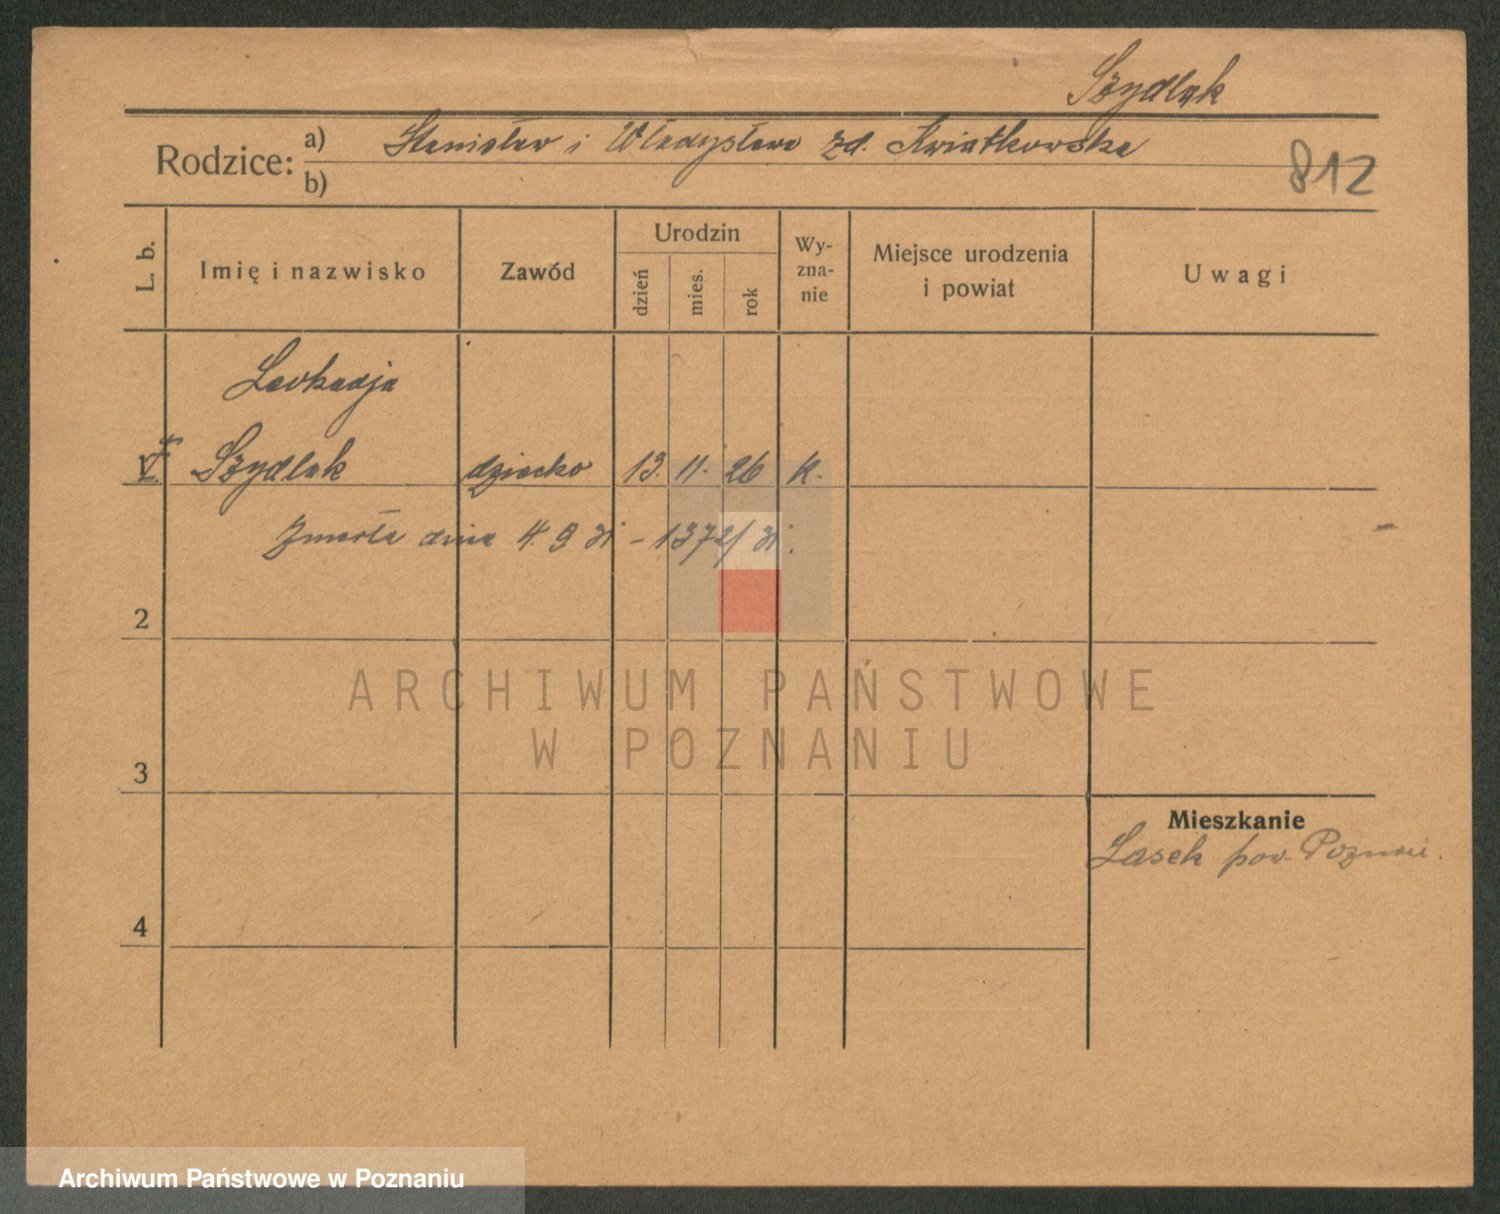 Szydlak
Rodzice: a) Stanisław i Władysława zd. Kwiatkowska
b)
812
L. b.
Imię i nazwisko
Zawód
Urodzin
dzień
mies.
rok
Wy-
zna-
nie
Miejsce urodzenia
i powiat
Uwagi
Leokadja
1 Szydlak dziecko 13. 11. 26 K.
Zmarła dnia 4. 9 31 - 1372/31.
2
ARCHIWUM PAŃSTWOWE
W POZNANIU
3
Mieszkanie
Lasek pow. Poznań.
4
Archiwum Państwowe w Poznaniu